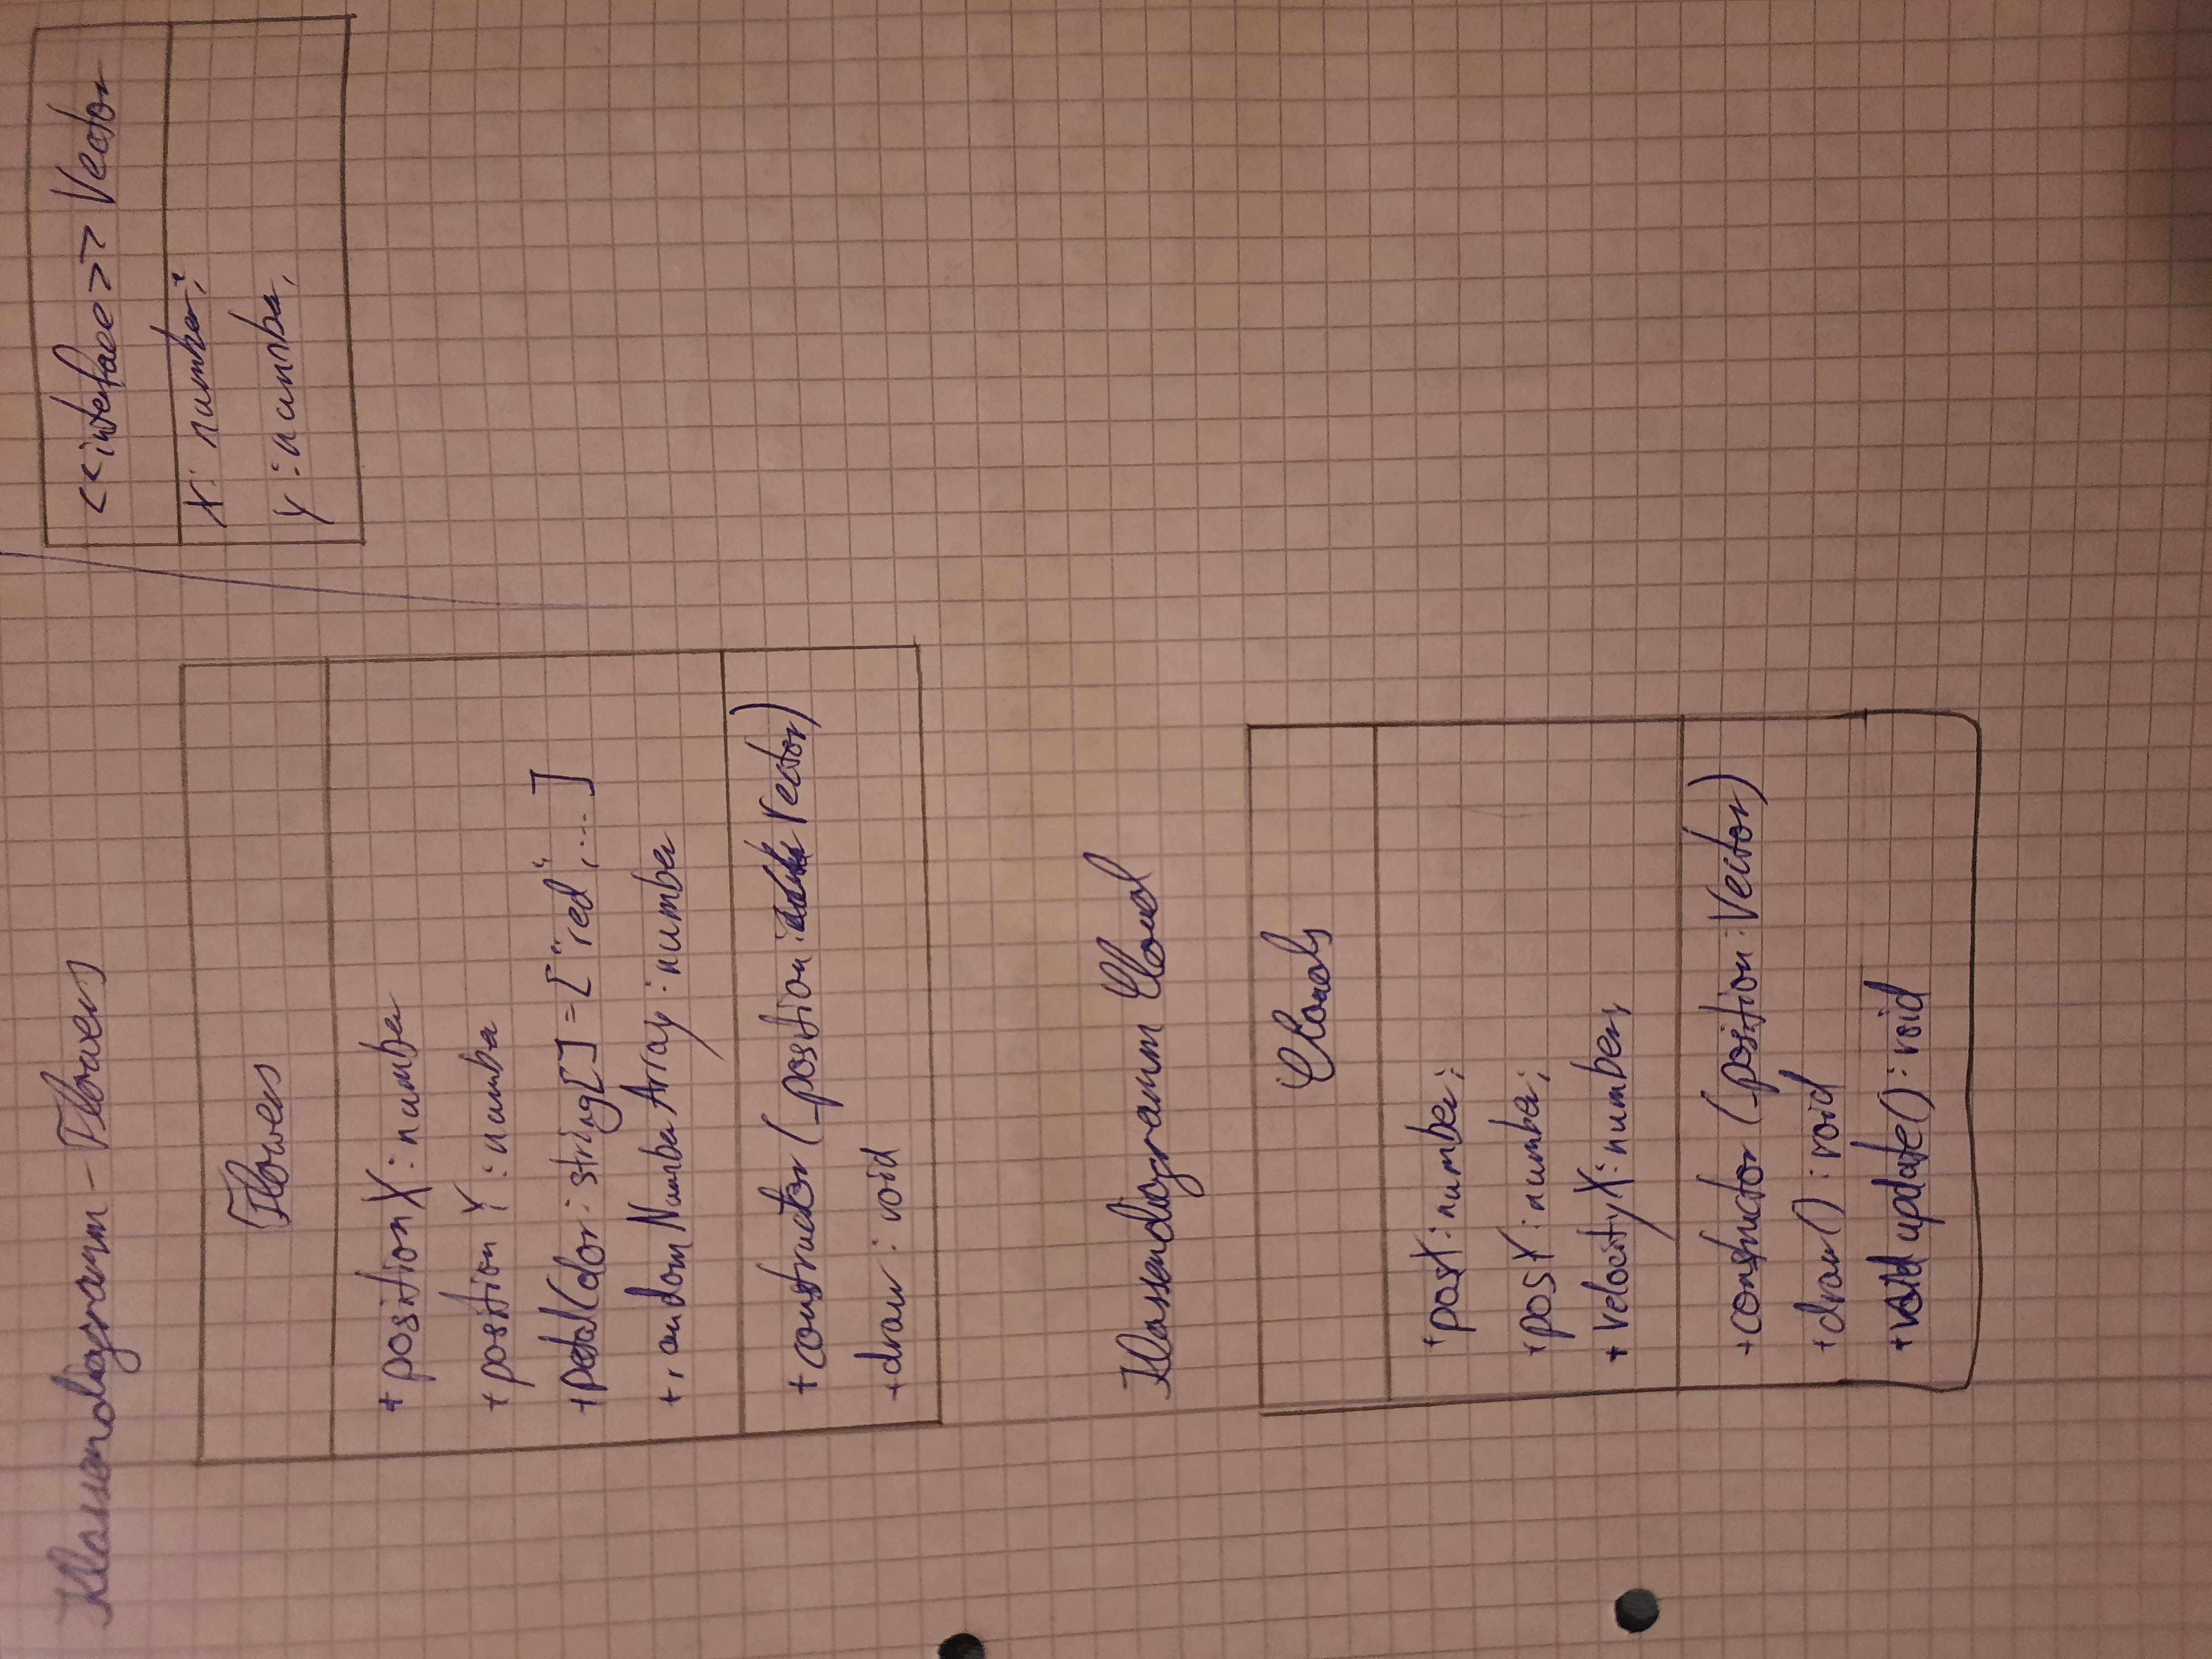 Klassendiagramm - Flowers
Flowers
+ positionX: number
+ positionY: number
+ petalColor: string[] = ["red",...]
+ randomNumberArray: number
+ constructor (_position: Vector)
+ draw: void
<<interface>> Vector
x: number;
y: number;
Klassendiagramm Cloud
Clouds
+ posX: number;
+ posY: number;
+ velocityX: number;
+ constructor (_position: Vector)
+ draw(): void
+ void update(): void